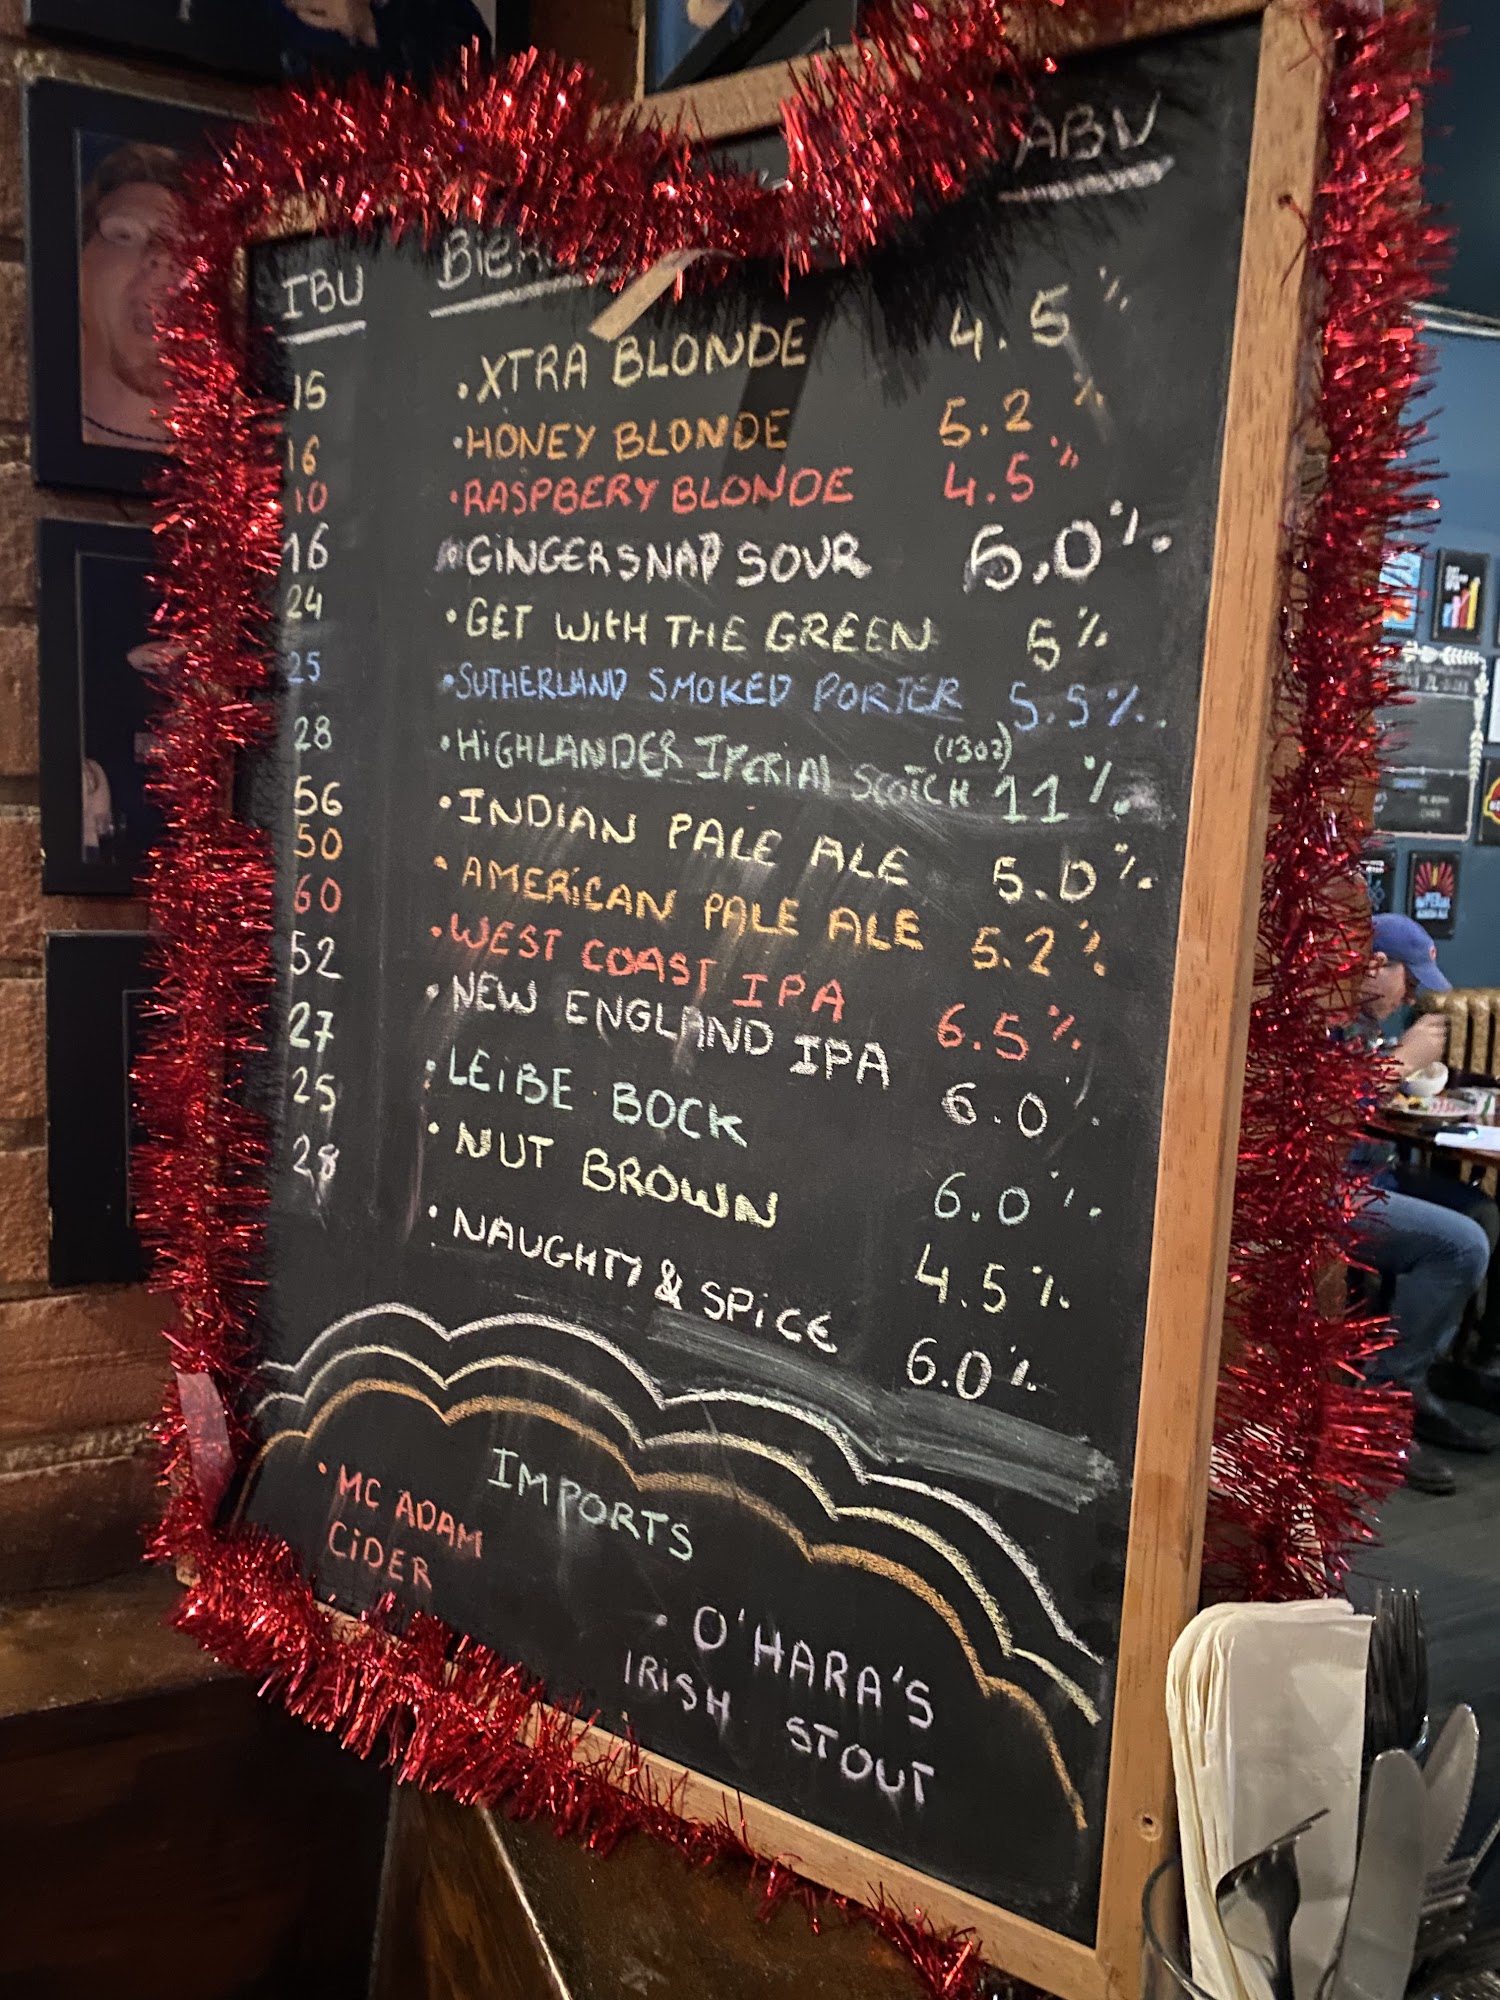 IBU ABV
15 • XTRA BLONDE 4.5 %
16 • HONEY BLONDE 5.2 %
10 • RASPBERY BLONDE 4.5 %
16 • GiNGERSNAP SOUR 5.0 %
24 • GET WiTH THE GREEN 5 %
25 • SUTHERLAND SMOKED PORTER 5.5 %
28 • HiGHLANDER IPERiAl SCOTCH (13oz) 11 %
56 • INDIAN PALE ALE 5.0 %
50 • AMERiCAN PALE ALE 5.2 %
60 • WEST COAST IPA 6.5 %
52 • NEW ENGLAND IPA 6.0
27 • LEiBE BOCK 6.0 %
25 • NUT BROWN 4.5 %
28 • NAUGHTY & SPiCE 6.0 %
IMPORTS
• MC ADAM
CiDER
• O'HARA'S
IRiSH STOUT